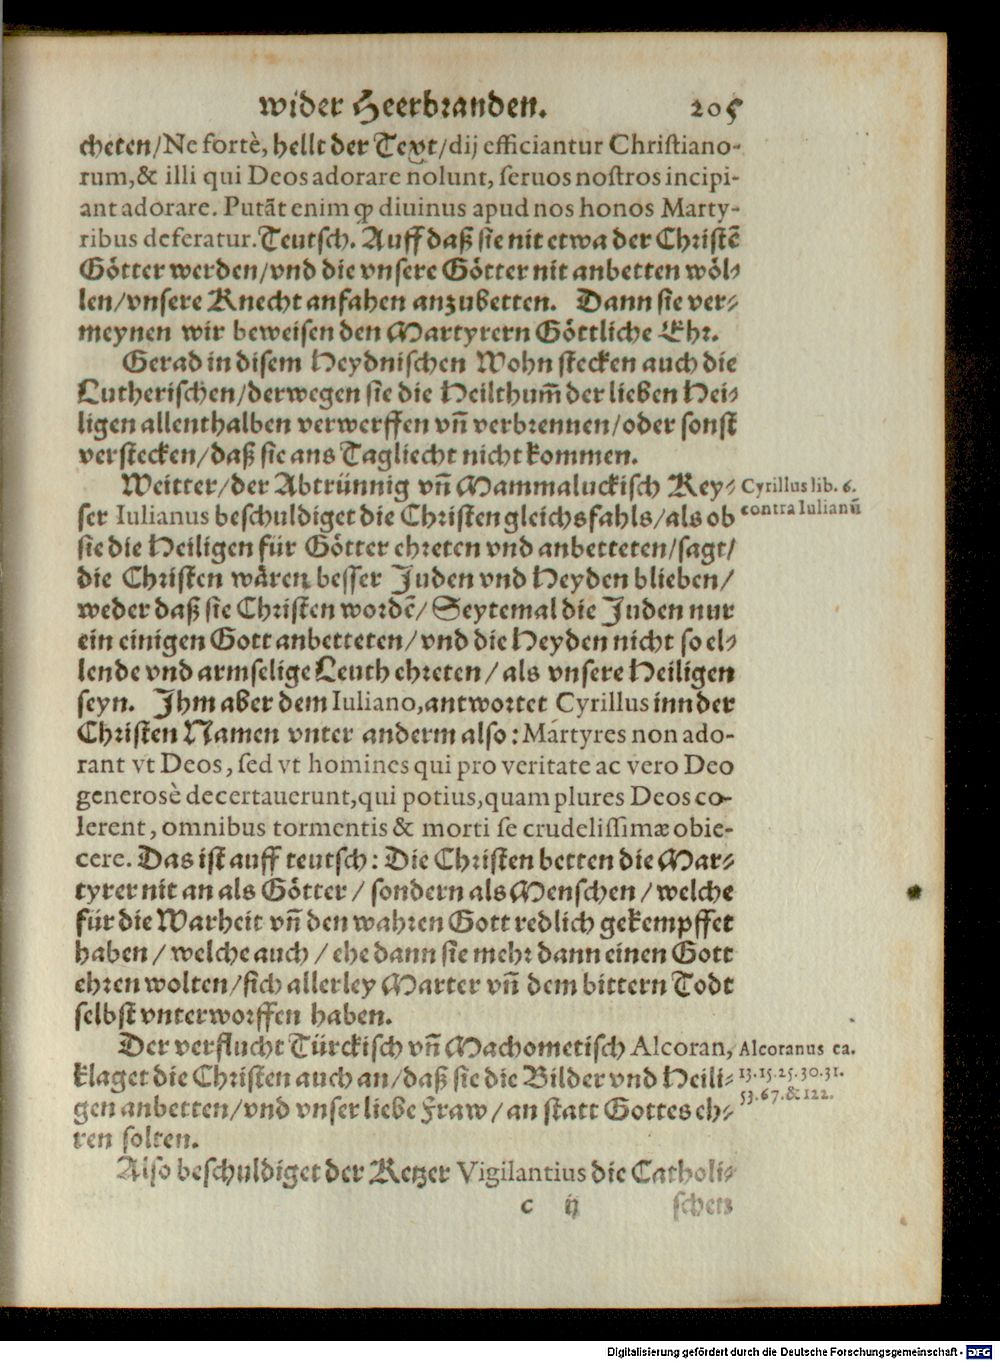 wider Heerbranden. 205
cheten/Ne fortè, hellt der Text/dij efficiantur Christiano-
rum,& illi qui Deos adorare nolunt, seruos nostros incipi-
ant adorare. Putãt enim ꝙ diuinus apud nos honos Marty-
ribus deferatur. Teutsch. Auff daß sie nit etwa der Christẽ
Götter werden/vnd die vnsere Götter nit anbetten wöl-
len/vnsere Knecht anfahen anzubetten. Dann sie ver-
meynen wir beweisen den Martyrern Göttliche Ehr.
Gerad in disem Heydnischen Wohn stecken auch die
Lutherischen/derwegen sie die Heilthum̃ der lieben Hei-
ligen allenthalben verwerffen vñ verbrennen/oder sonst
verstecken/daß sie ans Tagliecht nicht kommen.
Weitter/der Abtrünnig vñ Mammaluckisch Key-
ser Iulianus beschuldiget die Christen gleichsfahls/als ob
sie die Heiligen für Götter ehreten vnd anbetteten/sagt/
die Christen wären besser Juden vnd Heyden blieben/
weder daß sie Christen wordẽ/Seytemal die Juden nur
ein einigen Gott anbetteten/vnd die Heyden nicht so el-
lende vnd armselige Leuth ehreten/als vnsere Heiligen
seyn. Ihm aber dem Iuliano,antwortet Cyrillus inn der
Christen Namen vnter anderm also: Martyres non ado-
rant vt Deos, sed vt homines qui pro veritate ac vero Deo
generosè decertauerunt,qui potius,quam plures Deos co-
lerent, omnibus tormentis & morti se crudelissimæ obie-
cere. Das ist auff teutsch: Die Christen betten die Mar-
tyrer nit an als Götter/sondern als Menschen/welche
für die Warheit vñ den wahren Gott redlich gekempffet
haben/welche auch/ehe dann sie mehr dann einen Gott
ehren wolten/sich allerley Marter vñ dem bittern Todt
selbst vnterworffen haben.
Der verflucht Türckisch vñ Machometisch Alcoran,
klaget die Christen auch an/daß sie die Bilder vnd Heili-
gen anbetten/vnd vnser liebe Fraw/an statt Gottes eh-
ren solten.
Also beschuldiget der Ketzer Vigilantius die Catholi-
c ij schen
Cyrillus lib. 6.
contra Iulianũ
Alcoranus ca.
13.15.25.30.31.
53.67.&122.
Digitalisierung gefördert durch die Deutsche Forschungsgemeinschaft - DFG